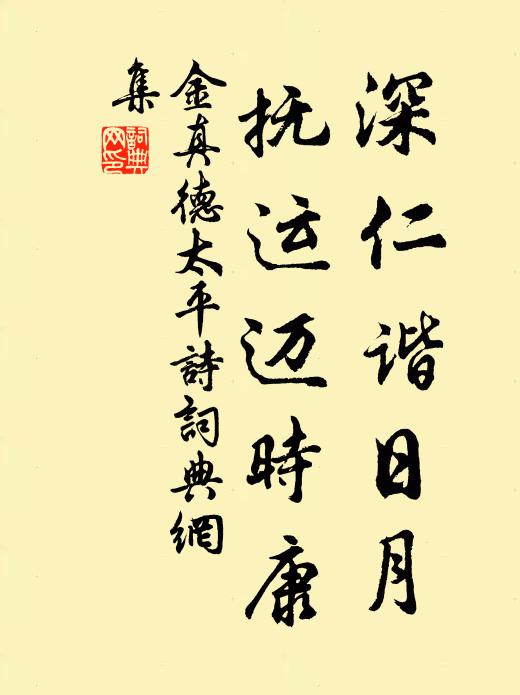 深仁谐日月
抚运迈時康
金真德太平詩詞典網
集
詞典
网印